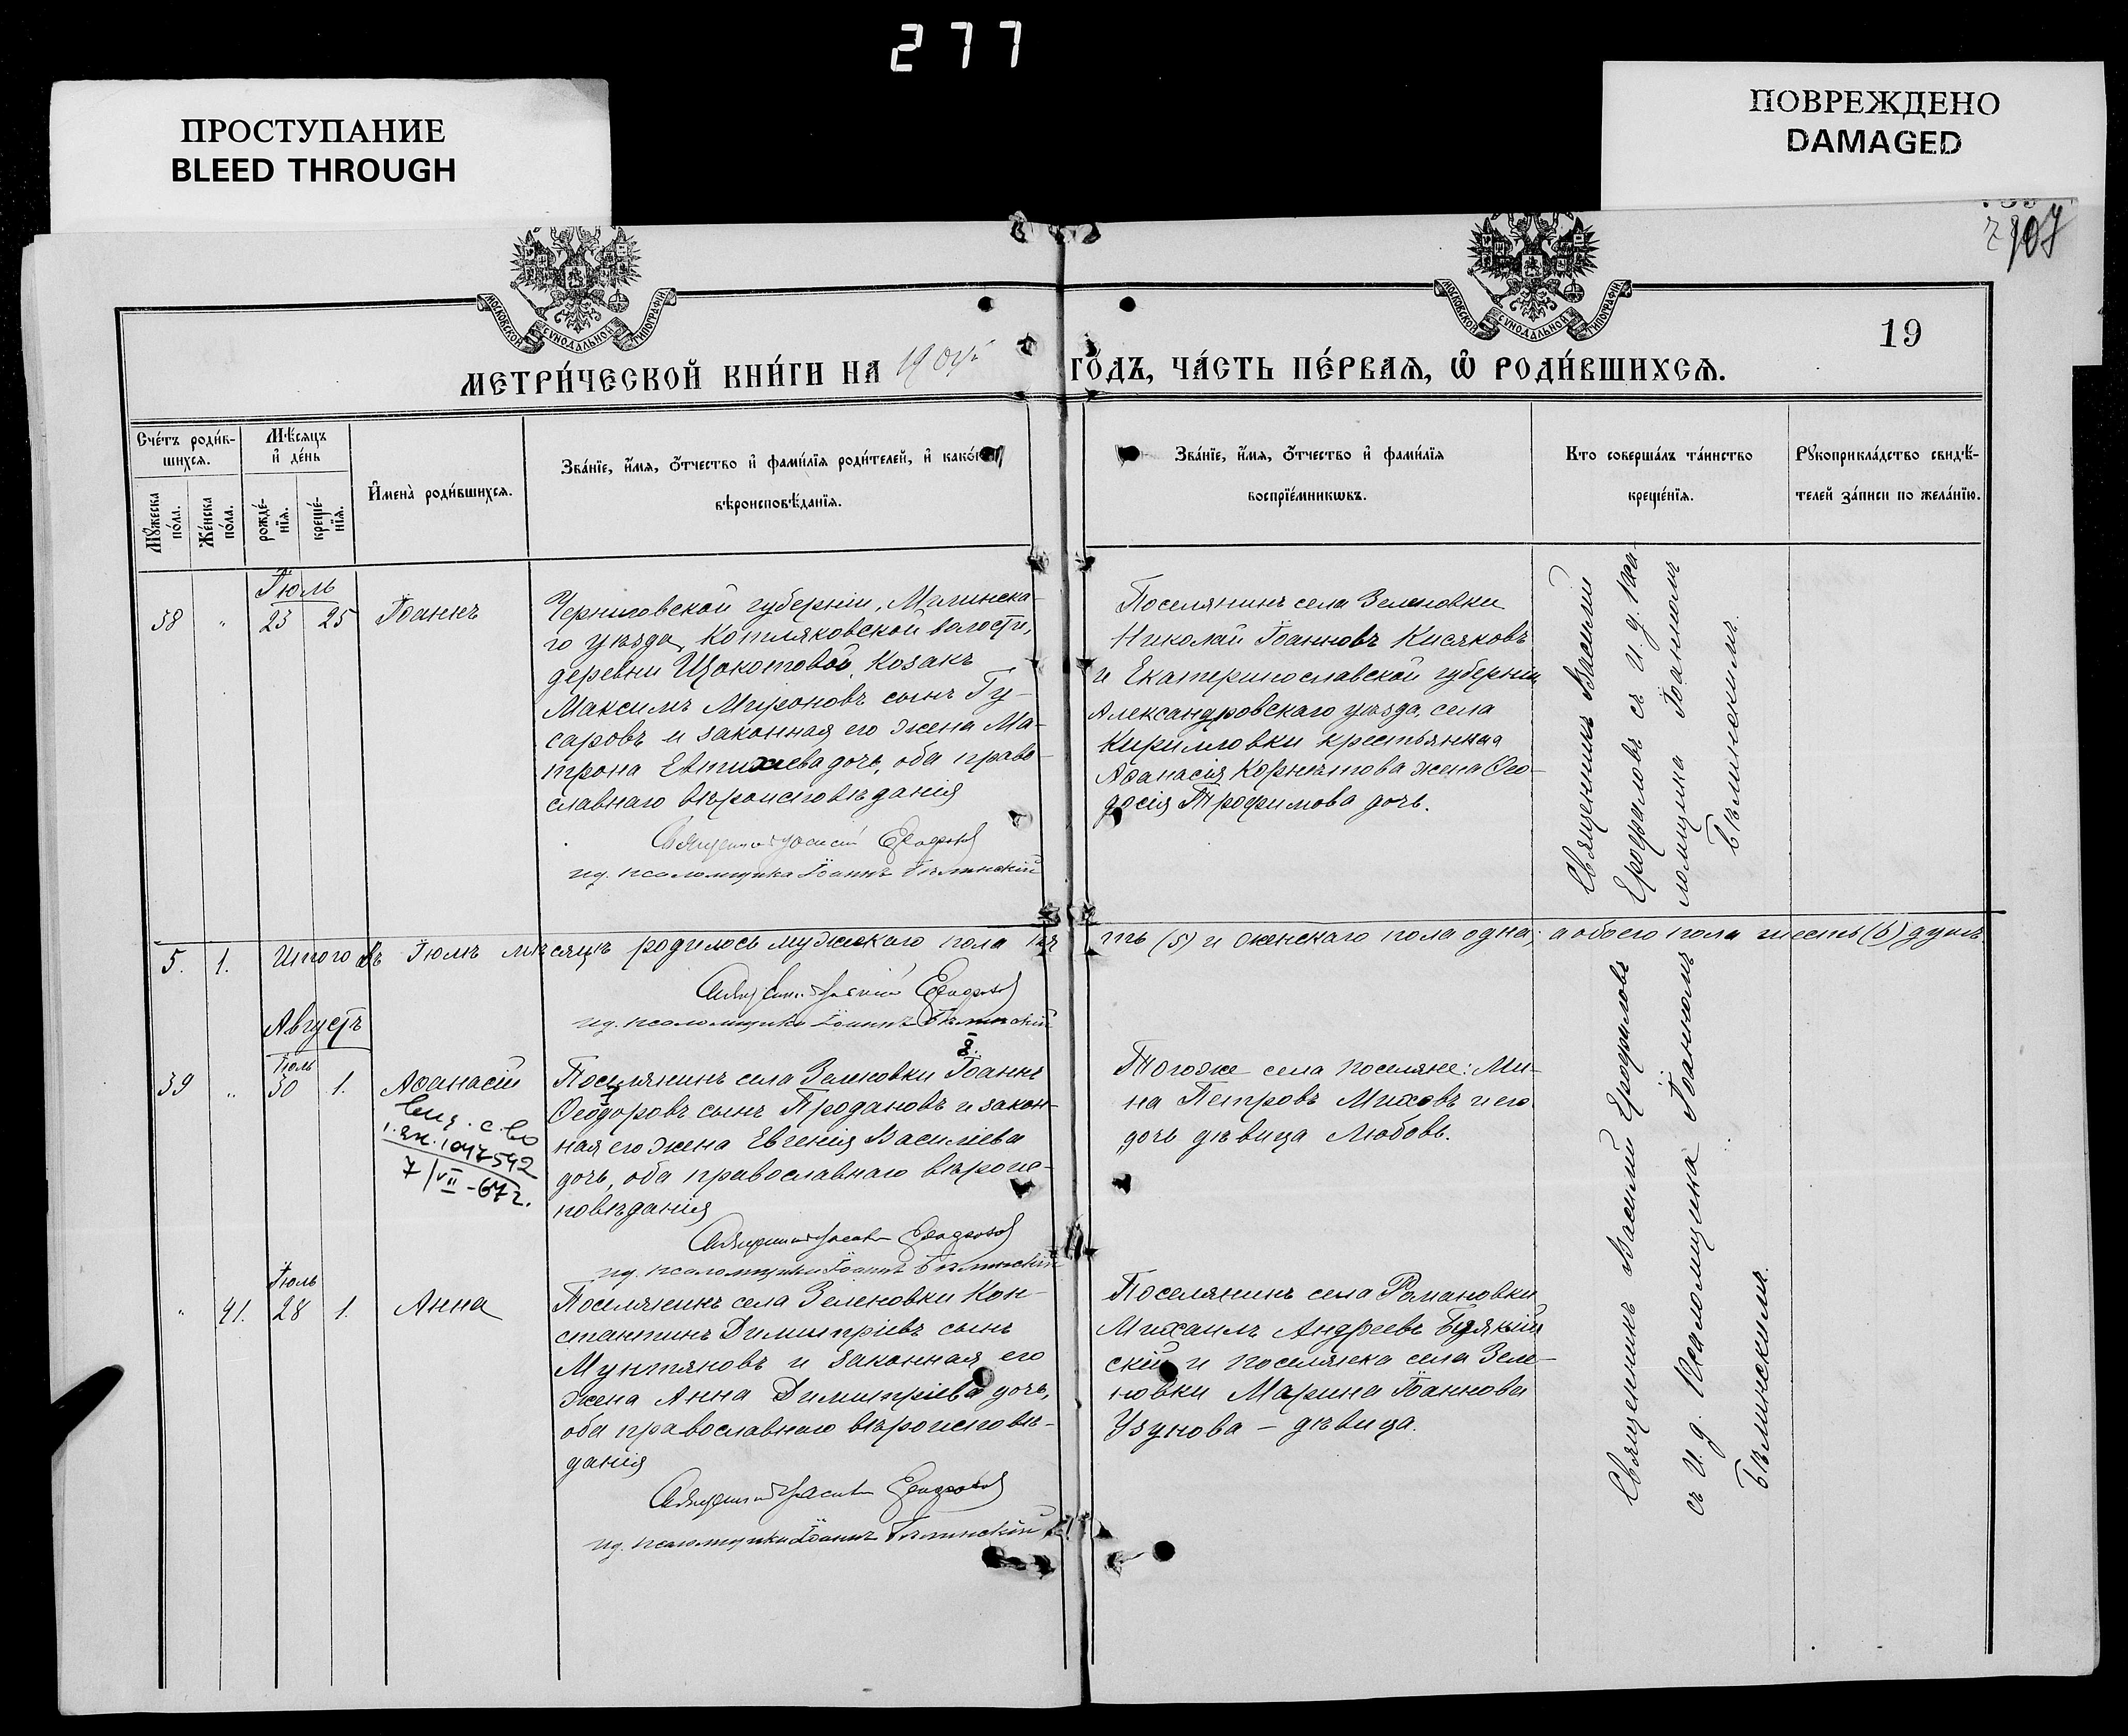 277
ПРОСТУПАНИЕ
BLEED THROUGH
ПОВРЕЖДЕНО
DAMAGED
107
МОСКОВСКОЙ СѴНОДАЛЬНОЙ ТИПОГРАФІИ
МОСКОВСКОЙ СѴНОДАЛЬНОЙ ТИПОГРАФІИ
19
МЕТРИ́ЧЕСКОЙ КНИ́ГИ НА 190
ГО́ДЪ, ЧА́СТЬ ПЕ́РВАѦ, Ѽ РОДИ́ВШИХСѦ.
Сче́тъ роди́в-
шихсѧ.
Мꙋ́жеска по́ла.
Же́нска по́ла.
Мѣ́сѧцъ
и҆ де́нь
рожде́-
нїѧ.
креще́-
нїѧ.
И҆мена̀ роди́вшихсѧ.
Зва́нїе, и҆́мѧ, ѻ҆́тчество и҆ фами́лїѧ роди́телей, и҆
вѣроисповѣ́данїѧ.
Зва́нїе, и҆́мѧ, ѻ҆́тчество и҆ фами́лїѧ
воспрїе́мникѡвъ.
Кто соверша́лъ та́инство
креще́нїѧ.
Рꙋкоприкла́дство свидѣ́-
телей за́писи по жела́нїю.
Іюль
38 " 23 25 Іоаннъ
Черниговской губерніи, Мглинска-
го уѣзда, Котляковской волости,
деревни Щокотовой, козакъ
Максимъ Мироновъ сынъ Гу-
саровъ и законная его жена Ма-
трона Евтихіева дочь, оба право-
славнаго вѣроисповѣданія
Священникъ Василій Ерофаловъ
ид. псаломщика Іоаннъ Бѣлинскій
Поселянинъ села Зеленовки
Николай Іоанновъ Кисяковъ
и Екатеринославской губерніи
Александровскаго уѣзда, села
Кирилловки крестьянина
Аѳанасія Корнѣтова жена Ѳео-
досія Трофимова дочь.
Священникъ Василій
Ерофаловъ съ И. д. Пса-
ломщика Іоанномъ
Бѣлинскимъ.
5. 1. Итого въ Іюлѣ мѣсяцѣ родилось мужескаго пола пя
ть (5) и женскаго пола одна, а обоего пола шесть (6) душъ
Священникъ Василій Ерофаловъ
ид. псаломщика Іоаннъ Бѣлинскій
Августъ
Іюль
39 " 30 1. Аѳанасій
1047592
7/VII-67г.
Поселянинъ села Зеленовки Іоаннъ
Ѳеодоровъ сынъ Продановъ и закон-
ная его жена Евгенія Василіева
дочь, оба православнаго вѣроис-
повѣданія
Священникъ Василій Ерофаловъ
ид. псаломщика Іоаннъ Бѣлинскій
Тогоже села поселяне: Ми-
на Петровъ Миховъ и его
дочь дѣвица Любовь.
Іюль
" 41. 28 1. Анна
Поселянинъ села Зеленовки Кон-
стантинъ Димитріевъ сынъ
Мунтяновъ и законная его
жена Анна Димитріева дочь,
оба православнаго вѣроисповѣ-
данія
Священникъ Василій Ерофаловъ
ид. псаломщика Іоаннъ Бѣлинскій
Поселянинъ села Романовки
Михаилъ Андреевъ
скій и поселянка села Зеле-
новки Марина Іоаннова
Узунова – дѣвица.
Священникъ Василій Ерофаловъ
съ И. д. Псаломщика Іоанномъ
Бѣлинскимъ.